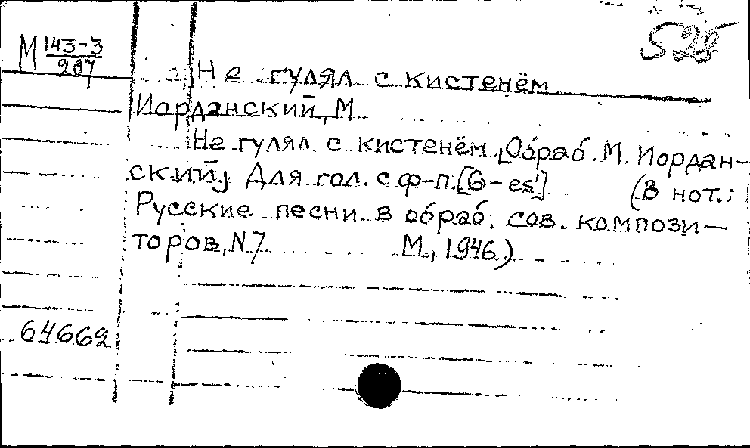 528
М 143-3
207
Не гулял с кистенём
Иорданский, М.
Не гулял с кистенём. [Обраб. М. Иордан-
ский]. Для гол. с ф-п. [G-es'] (В нот.:
Русские песни в обраб. сов. компози-
торов, N 7 М., 1946.)
64662